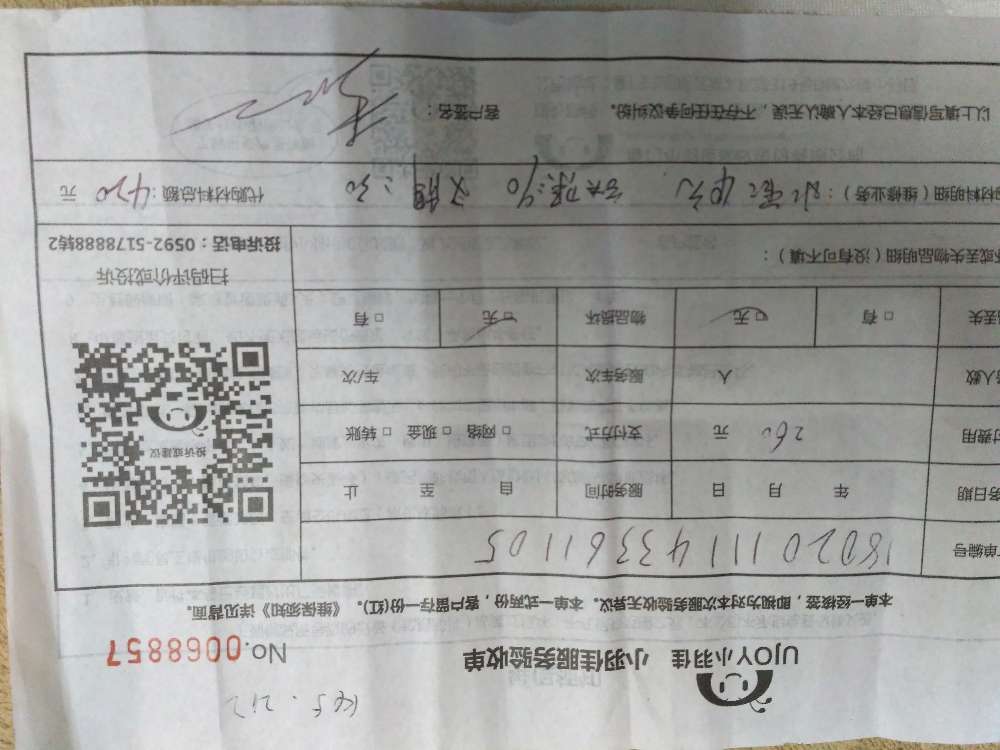 UJOY小羽佳 小羽佳服务验收单 No.0068857
本单一经核签，即视为对本次服务验收无异议。本单一式两份，客户留存一份(红)。《维保须知》详见背面。
单编号 18020111143361105
务日期 年 月 日 服务时间 自 至 止
付费用 260 元 支付方式 □ 网络 □ 现金 □ 转账
人数 人 服务车次 车/次
丢失 □ 有 □ 无 物品损坏 □ 无 □ 有
投诉或建议
扫码评价或投诉
投诉电话：0592-5178888转2
或丢失物品明细（没有可不填）：
材料明细（维修业务）： :90 :30 代购材料总额：420 元
以上填写信息已经本人确认无误，不存在任何争议纠纷。 客户签名：